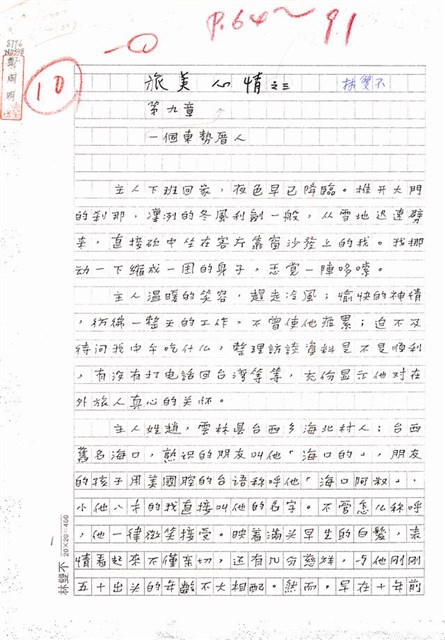 P.64～91
10
旅美心情之三 林双不
第九章
一個東勢厝人
主人下班回家，夜色早已降臨。推开大門
的刹那，凜冽的冬風利劍一般，从雪地迅速劈
來，直接砍中坐在客厅靠窗沙發上的我。我挪
动一下縮成一团的身子，忍受一陣哆嗦。
主人溫暖的笑容，趕走冷風；愉快的神情
，彷彿一整天的工作，不曾使他疲累；迫不及
待问我中午吃什么，整理訪談資料是不是順利
，有没有打电話回台湾等等，充份显示他对在
外旅人真心的关怀。
主人姓趙，雲林县台西乡海北村人；台西
舊名海口，熟识的朋友叫他「海口的」，朋友
的孩子用美國腔的台语称呼他「海口阿叔」，
小他八才的我直接叫他的名字。不管怎么称呼
，他一律微笑接受。映着滿头早生的白髮，表
情看起來不僅亲切，还有几分慈祥，与他刚刚
五十出头的年
林双不 20×20=400